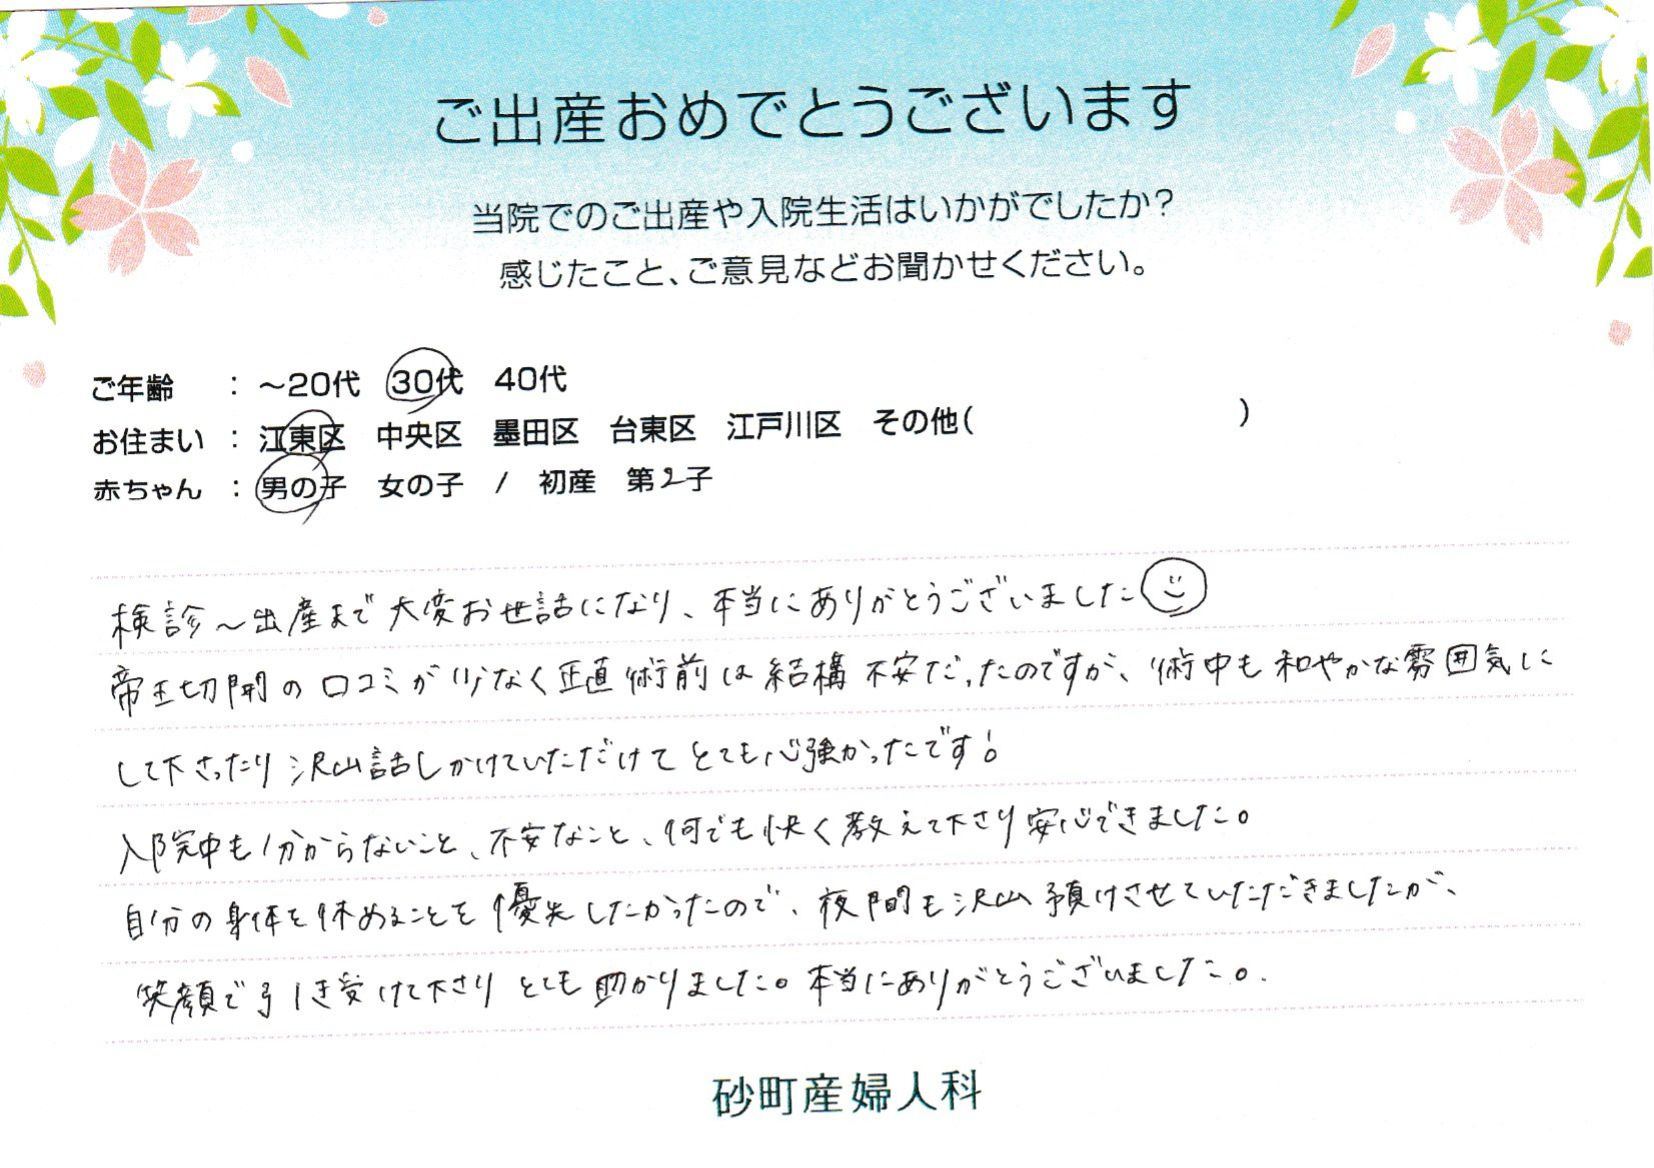 ご出産おめでとうございます
当院でのご出産や入院生活はいかがでしたか?
感じたこと、ご意見などお聞かせください。
ご年齢 : ～20代 30代 40代
お住まい : 江東区 中央区 墨田区 台東区 江戸川区 その他( )
赤ちゃん : 男の子 女の子 / 初産 第2子
検診～出産まで大変お世話になり、本当にありがとうございました
帝王切開の口コミが少なく正直術前は結構不安だったのですが、術中も和やかな雰囲気に
して下さったり沢山話しかけていただけてとても心強かったです!
入院中も分からないこと、不安なこと、何でも快く教えて下さり安心できました。
自分の身体を休めることを優先したかったので、夜間も沢山預けさせていただきましたが、
笑顔で引き受けて下さりとても助かりました。本当にありがとうございました。
砂町産婦人科